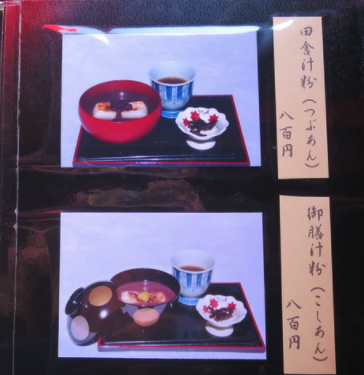 田舎汁粉（つぶあん）
八百円
御膳汁粉（こしあん）
八百円